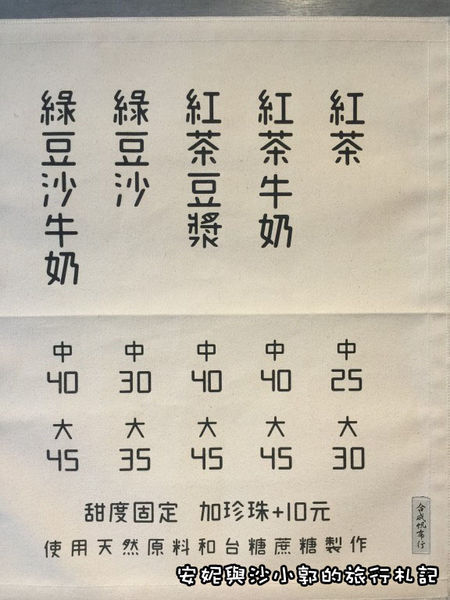 紅茶
紅茶牛奶
紅茶豆漿
綠豆沙
綠豆沙牛奶
中 中 中 中 中
40 30 40 40 25
大 大 大 大 大
45 35 45 45 30
甜度固定 加珍珠+10元
使用天然原料和台糖蔗糖製作
合成帆布行
安妮與沙小郭的旅行札記